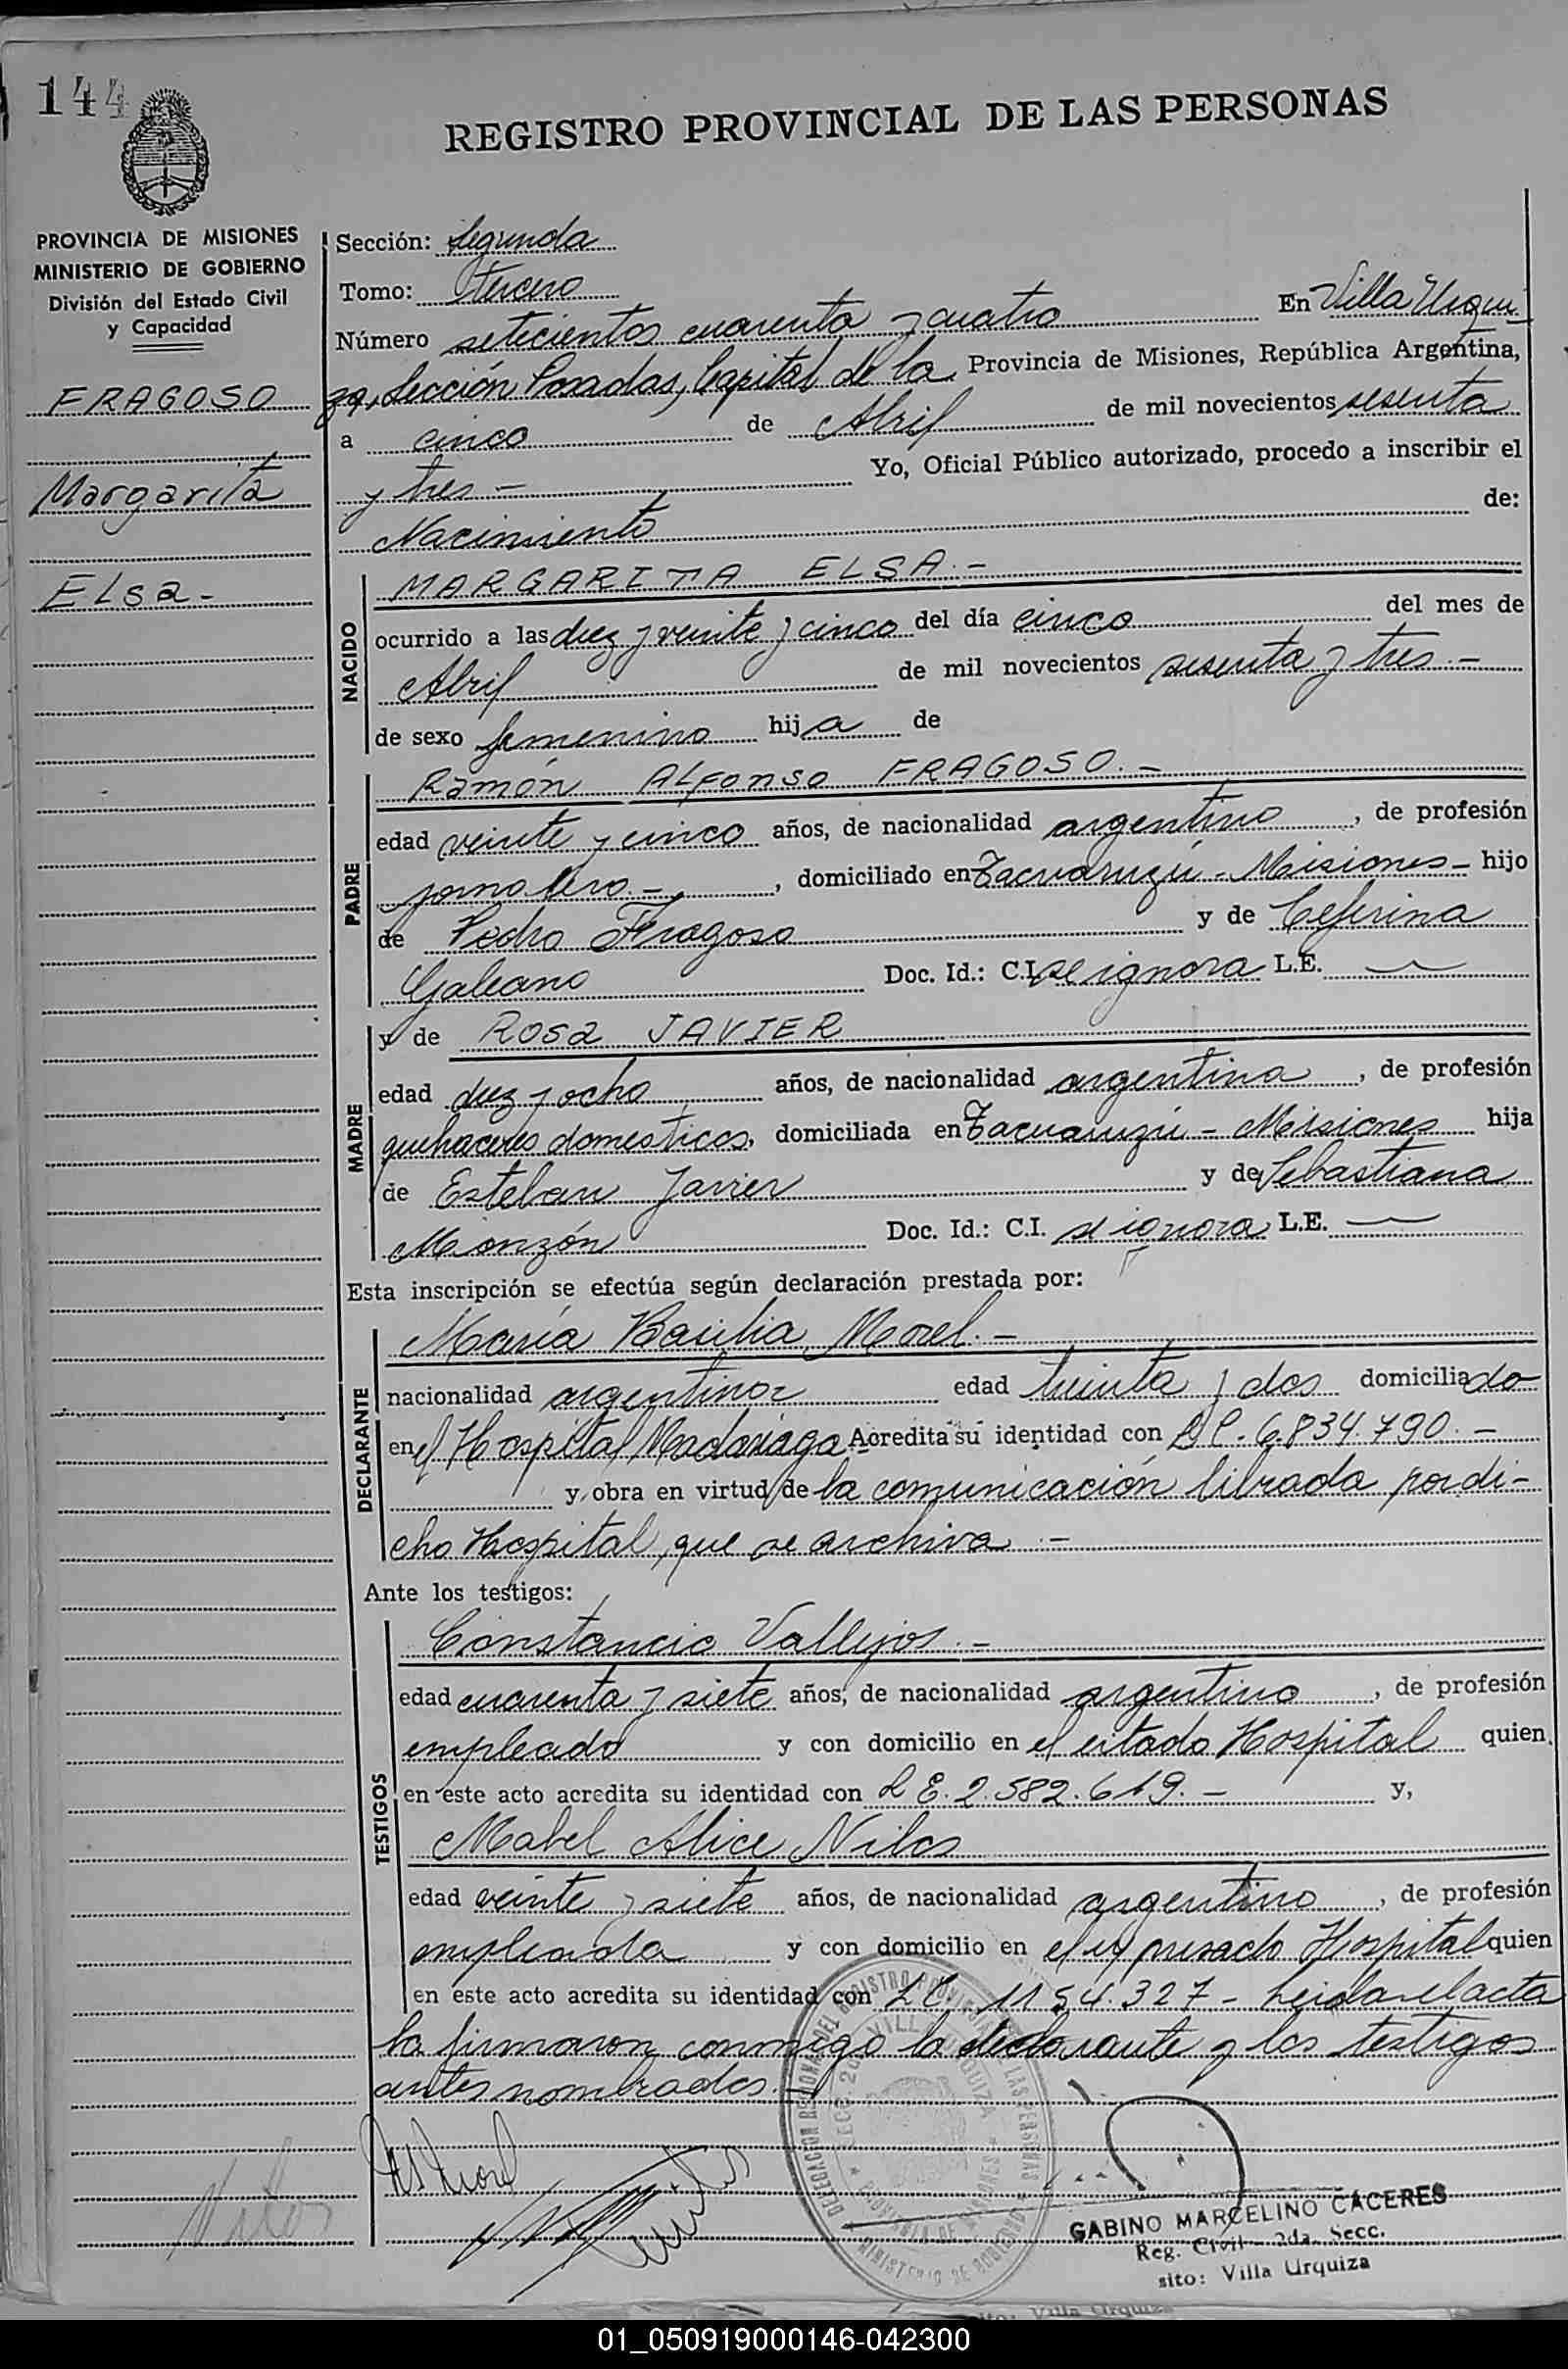 144
REGISTRO PROVINCIAL DE LAS PERSONAS
PROVINCIA DE MISIONES
MINISTERIO DE GOBIERNO
División del Estado Civil
y Capacidad
FRAGOSO
Margarita
Elsa-
Sección: Segunda
Tomo: tercero
Número setecientos cuarenta y cuatro En Villa Urqui
za, Sección Posadas, Capital de la Provincia de Misiones, República Argentina,
a cinco de Abril de mil novecientos sesenta
y tres - Yo, Oficial Público autorizado, procedo a inscribir el
Nacimiento de:
NACIDO
MARGARITA ELSA.-
ocurrido a las diez y veinte y cinco del día cinco del mes de
Abril de mil novecientos sesenta y tres.-
de sexo femenino hija de
PADRE
Ramón Alfonso FRAGOSO.-
edad veinte y cinco años, de nacionalidad argentino, de profesión
jornalero.-, domiciliado en Tacuaruzú - Misiones - hijo
de Pedro Fragoso y de Ceferina
Galeano Doc. Id.: C.I. se ignora L.E. —
MADRE
y de Rosa JAVIER
edad diez y ocho años, de nacionalidad argentina, de profesión
quehaceres domesticos, domiciliada en Tacuaruzú - Misiones hija
de Esteban Javier y de Sebastiana
Monzón Doc. Id.: C.I. se ignora L.E. —
Esta inscripción se efectúa según declaración prestada por:
DECLARANTE
María Basilia Morel.-
nacionalidad argentina edad treinta y dos domiciliado
en el Hospital Madariaga Acredita su identidad con 6.834.790.-
y obra en virtud de la comunicación librada por di-
cho Hospital, que se archiva.-
Ante los testigos:
TESTIGOS
Constancio Vallejos.-
edad cuarenta y siete años, de nacionalidad argentino, de profesión
empleado y con domicilio en el citado Hospital quien
en este acto acredita su identidad con L E. 2.582.619.- y,
Mabel Alice Nilos
edad veinte y siete años, de nacionalidad argentino, de profesión
empleada y con domicilio en el expresado Hospital quien
en este acto acredita su identidad con L C. 1154.327- Leida el acta
la firmaron conmigo la declarante y los testigos
antes nombrados.-
DELEGACION REGIONAL DEL REGISTRO PROVINCIAL DE LAS PERSONAS
SECC. 2da VILLA URQUIZA
PROVINCIA DE MISIONES
MINISTERIO DE GOBIERNO
GABINO MARCELINO CACERES
Reg. Civil - 2da. Secc.
sito: Villa Urquiza
01_050919000146-042300